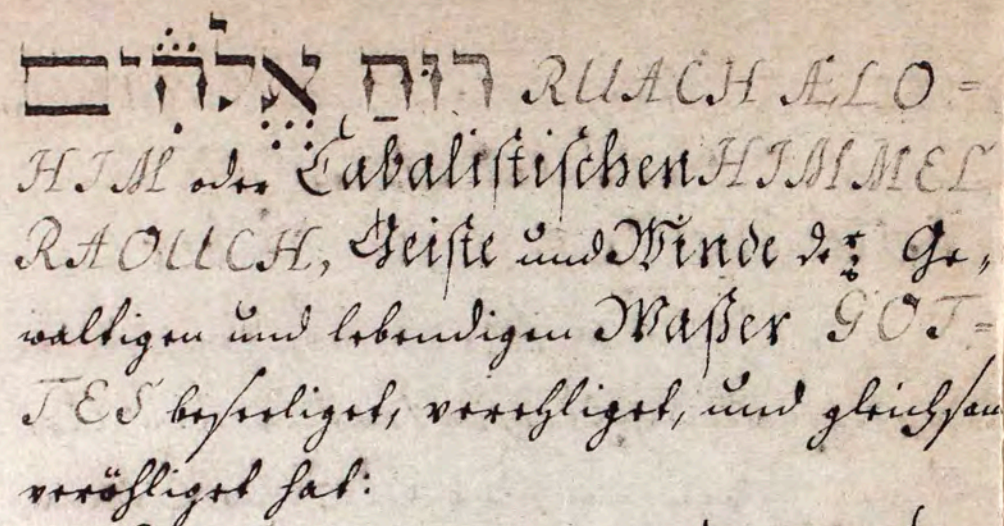 רוּחַ אֱלֹהִים RUACH ÆLO=
HIM oder Cabalistischen HIMMEL
RAOUCH, Geiste und Winde der Ge,,
waltigen und lebendigen Waßer GOT=
TES beseeliget, verehliget, und gleichsam
veröhliget hat: